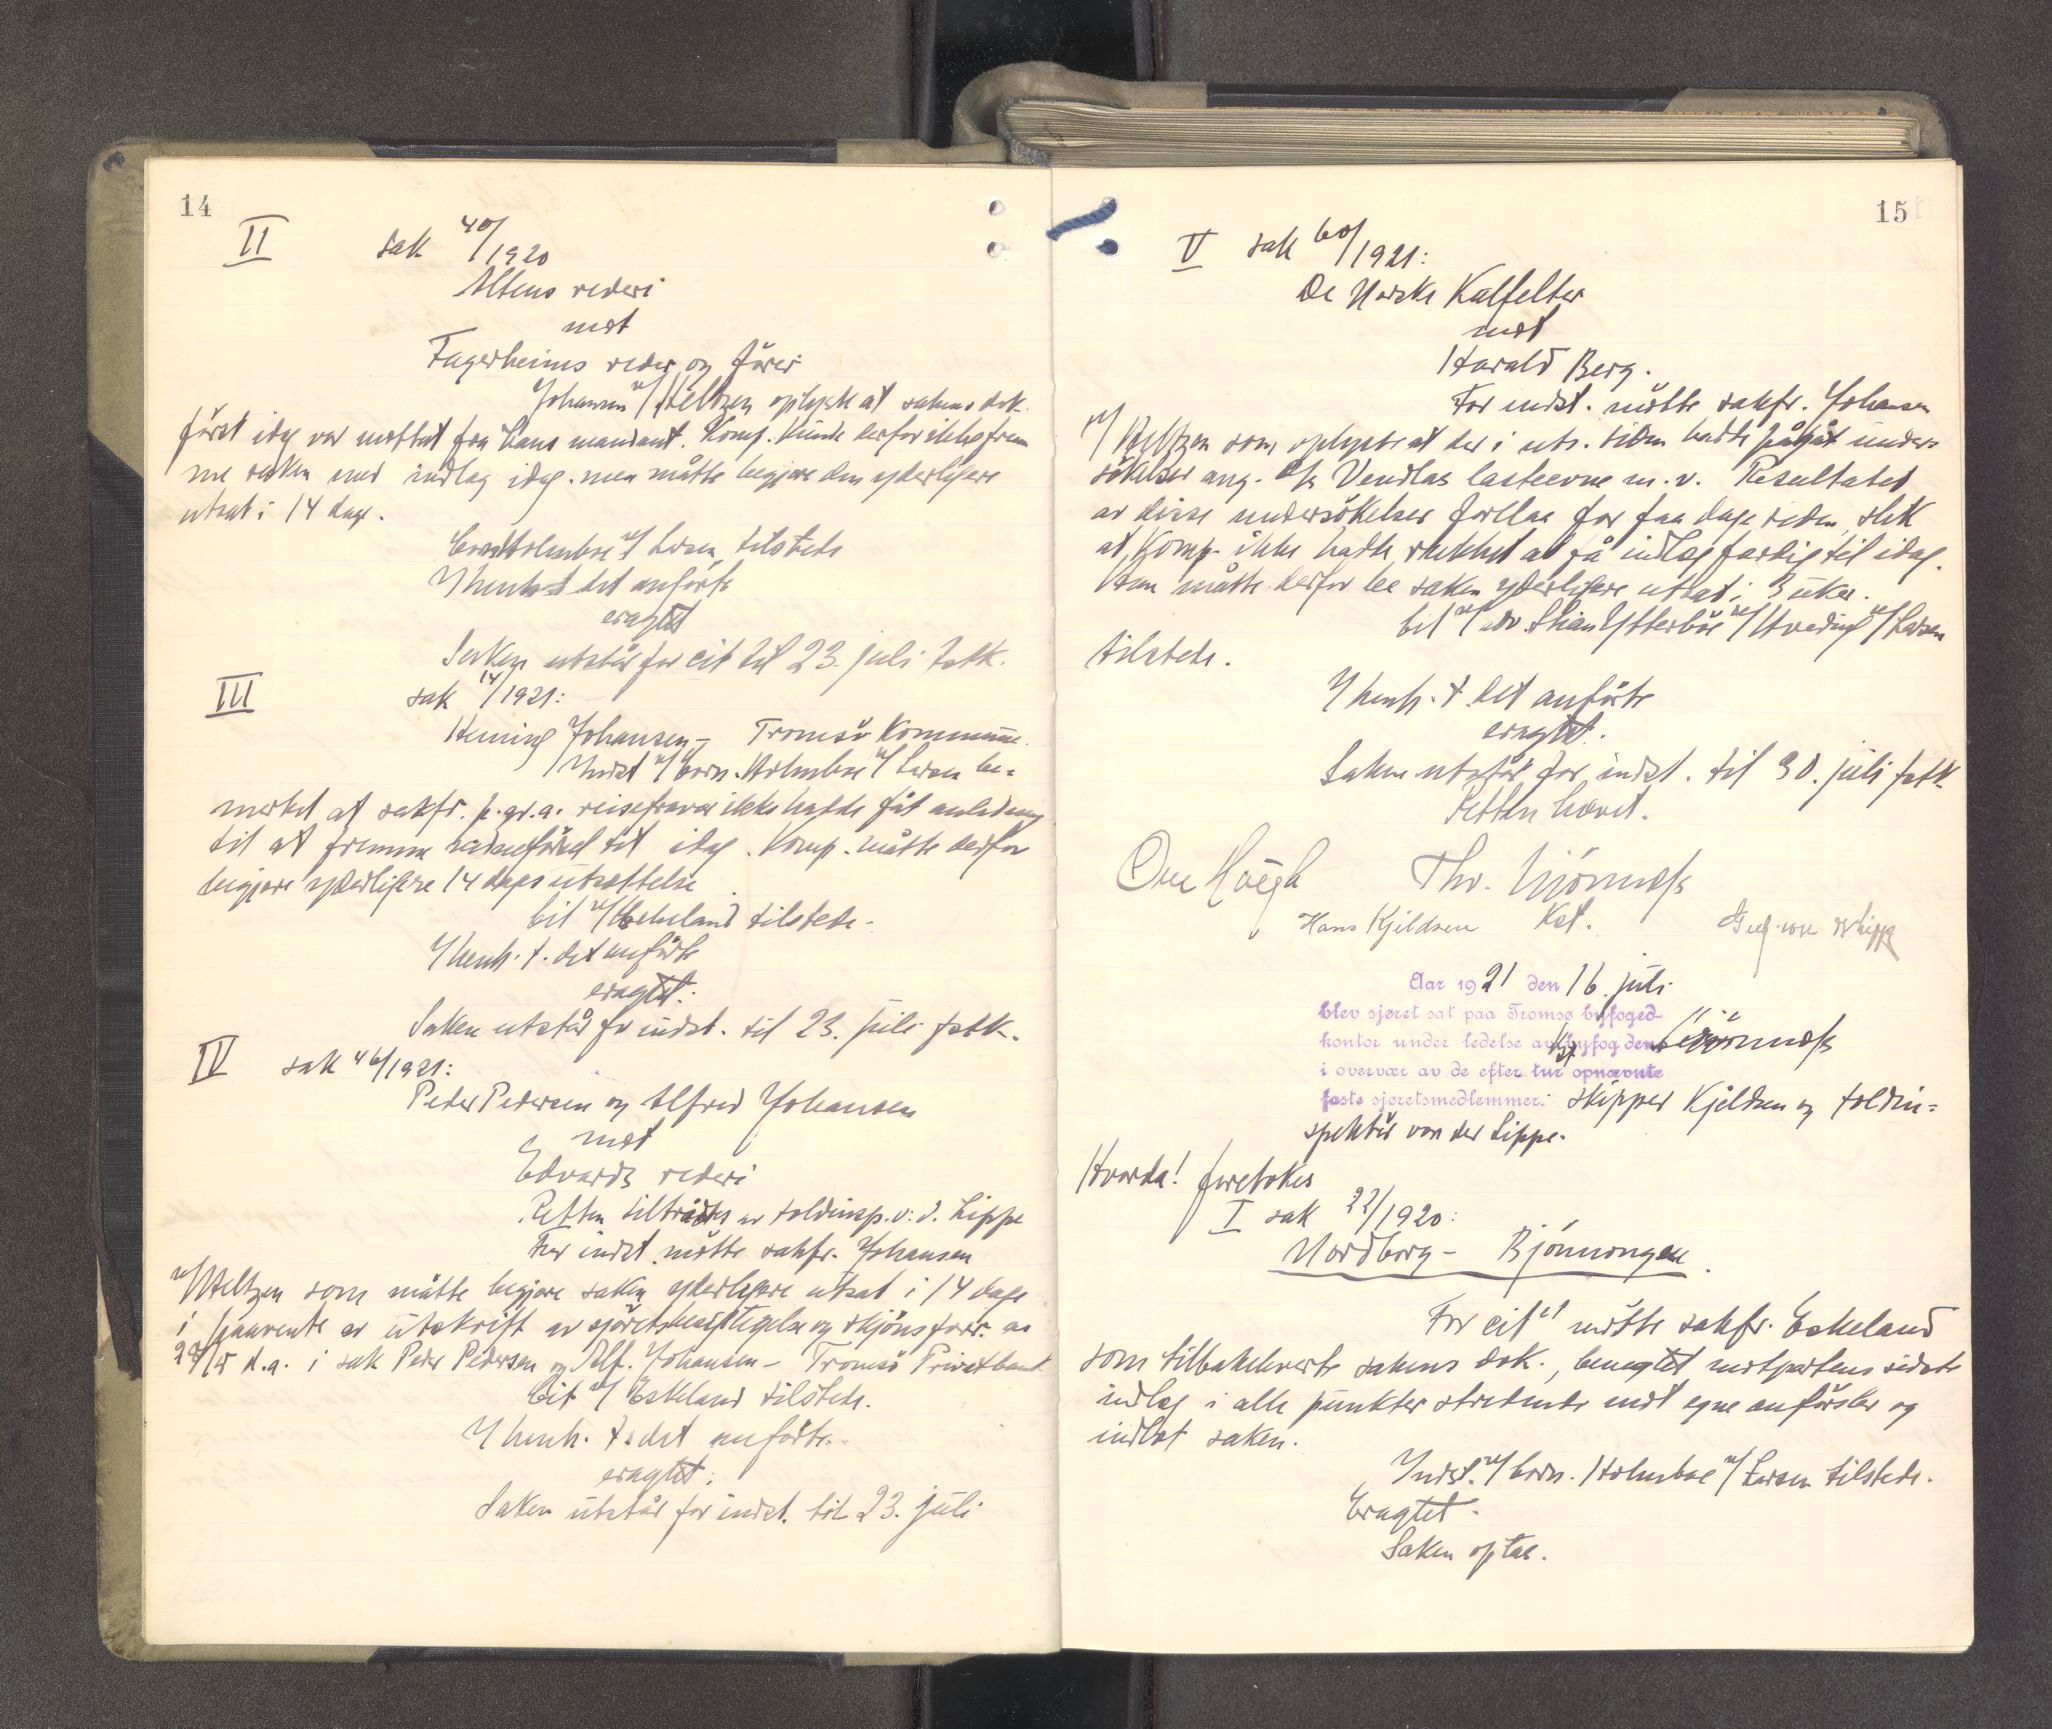 14
II sak 40/1920
Altens rederi
mot
Fagerheims reder og fører
Johansen v/ Meltzer oplyste at sakens dok.
først idag var mottat fra hans mandant. Komp. kunde derfor ikke frem
me saken med indlæg idag. men måtte begjære den yderligere
utsat i 14 dage.
Holmboe v/ Larsen tilstede
I henh. t det anførte
eragtet
Saken utstår for cit til 23. juli førstk.
III
sak 14/1921:
Henning Johansen - Tromsø Kommune.
Indst v/ Corn. Holmboe v/ Larsen be-
merket at sakfr. p.gr.a. reisefravær ikke hadde fåt anledning
til at fremme til idag. Komp. måtte derfor
begjære yderligere 14 dages utsættelse.
Cit v/ Eskeland tilstede.
I henh. t. det anførte
eragtet:
Saken utstår for indst. til 23. juli førstk.
IV sak 46/1921:
Peder Pedersen og Alfred Johansen
mot
Edvards rederi
Retten tiltrådtes av toldinsp. v. d. Lippe
For indst. møtte sakfr. Johansen
v/ Meltzer som måtte begjære saken yderligere utsat i 14 dage
i påvente av utskrift av sjøretsbesigtigelse og skjønsforr. av
28/5 d.a. i sak Peder Pedersen og Alf. Johansen - Tromsø Privatbank
Cit v/ Eskeland tilstede.
I henh. t. det anførte.
eragtet:
Saken utstår for indst. til 23. juli
15
V sak 60/1921:
De Norske Kulfelter
mot
Harald Berg.
For indst. møtte sakfr. Johansen
v/ Meltzer som oplyste at der i uts. tiden hadde pågåt under-
søkelser ang. Vendlas lasteevne m.v. Resultatet
av disse undersøkelser forlaa for faa dage siden, slik
at Komp. ikke hadde rukket at få indlæg færdig til idag.
Han måtte derfor be saken yderligere utsat i 3 uker.
Cit v/ adv. Stian Ytterbøe v/ Hveding v/ Larsen
tilstede.
I henh. t det anførte
eragtet.
Saken utstår for indst. til 30. juli førstk.
Retten hævet.
Ove Høegh Thv. Bjørnnæss
Hans Kjeldsen Kst.
Aar 1921 den 16. juli
blev sjøret sat paa Tromsø byfoged-
kontor under ledelse av byfogden kst Bjørnnæss
i overvær av de efter tur opnævnte
faste sjøretsmedlemmer: skipper Kjeldsen og toldin-
spektør von der Lippe.
Hvorda! foretokes
I sak 22/1920:
Nordborg - Bjønnungen.
For cit møtte sakfr. Eskeland
som tilbakeleverte sakens dok., benegtet motpartens sidste
indlæg i alle punkter stridende mot egne anførsler og
indlot saken.
Indst. v/ Corn. Holmboe v/ Larsen tilstede.
Eragtet.
Saken optas.